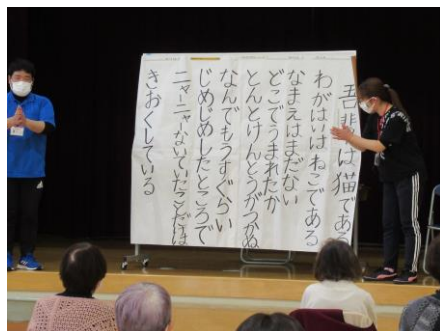 吾輩は猫である
わがはいはねこである
なまえはまだない
どこでうまれたか
とんとけんとうがつかぬ
なんでもうすぐらい
じめじめしたところで
ニャーニャーないていたことだけは
きおくしている